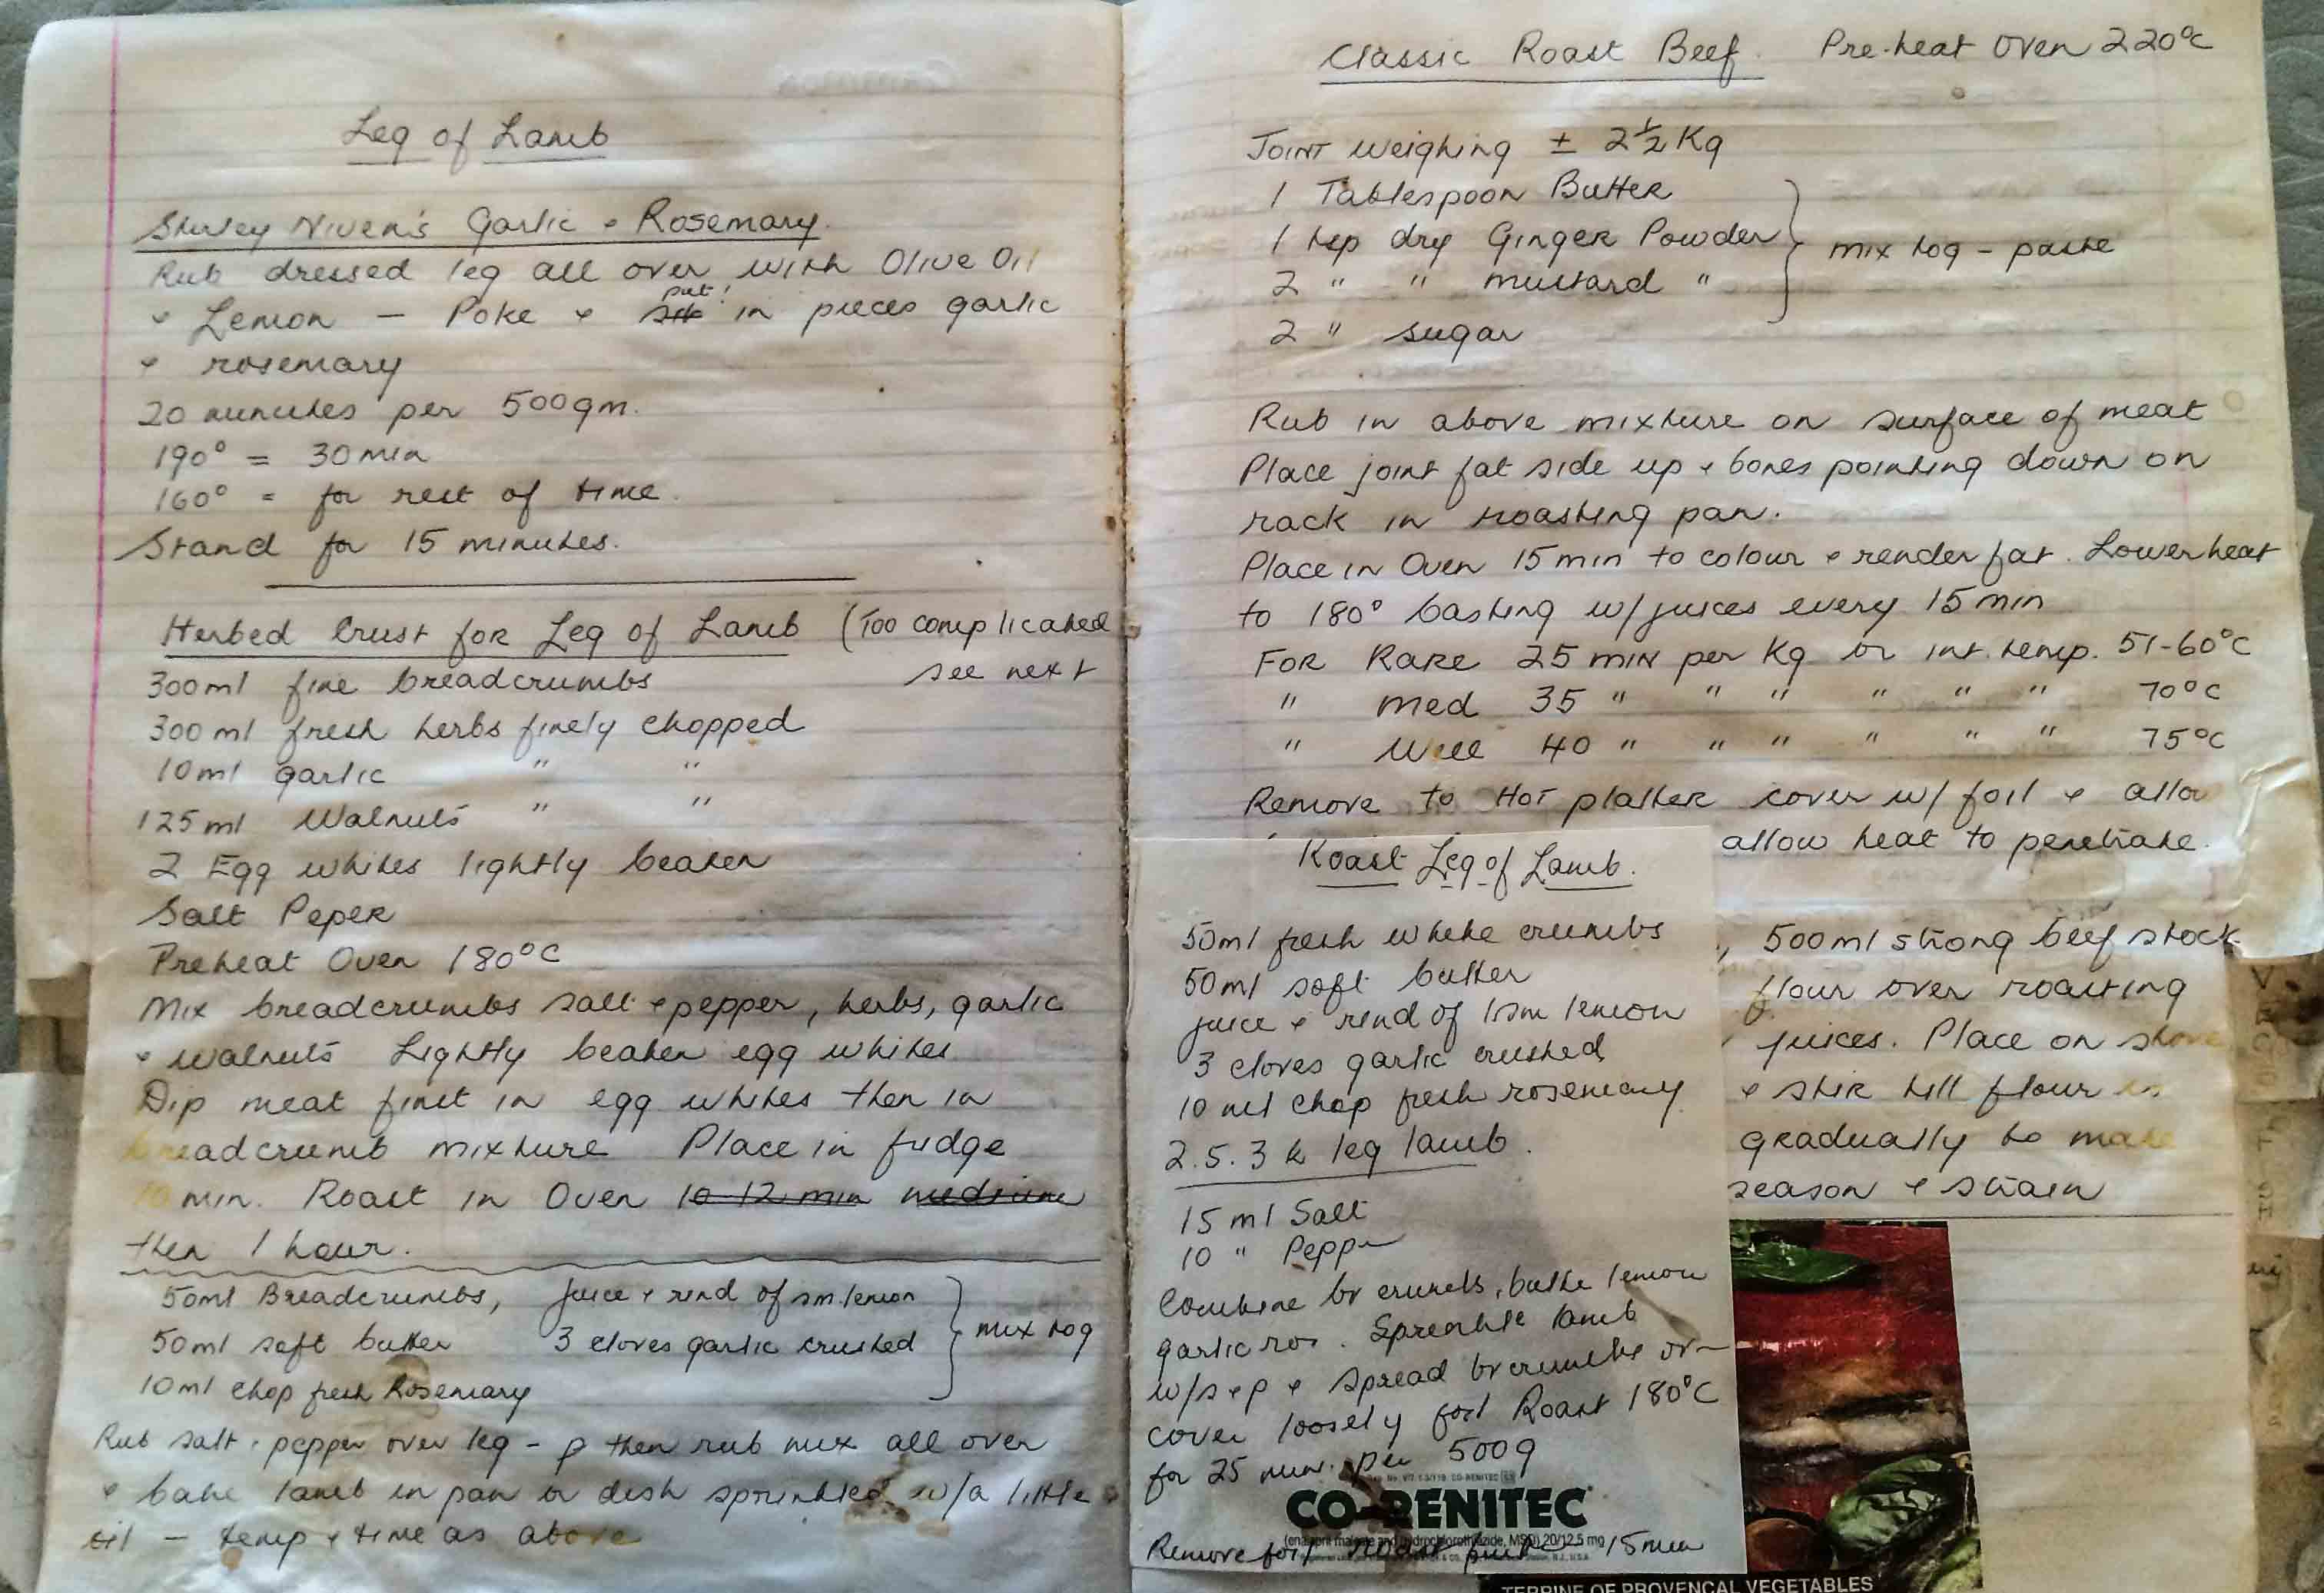 Leg of Lamb
Shirley Niven's Garlic & Rosemary.
Rub dressed leg all over with Olive Oil
& Lemon — Poke & put in pieces garlic
& rosemary
20 minutes per 500gm.
190° = 30min
160° = for rest of time.
Stand for 15 minutes.
Herbed Crust for Leg of Lamb (Too complicated
see next
300ml fine breadcrumbs
300ml fresh herbs finely chopped
10ml garlic " "
125ml Walnuts " "
2 Egg whites lightly beaten
Salt Peper
Preheat Oven 180°C
Mix breadcrumbs salt & pepper, herbs, garlic
& walnuts Lightly beaten egg whites
Dip meat first in egg whites then in
breadcrumb mixture Place in fridge
10 min. Roast in Oven 10-12 min medium
then 1 hour.
50ml Breadcrumbs, juice & rind of sm. lemon
50ml soft butter 3 cloves garlic crushed } mix tog
10ml chop fresh Rosemary
Rub salt & pepper over leg - p then rub mix all over
& bake lamb in pan or dish sprinkled w/a little
oil — temp & time as above
Classic Roast Beef. Pre-heat Oven 220°C
Joint weighing ± 2½ Kg
1 Tablespoon Butter
1 tsp dry Ginger Powder } mix tog - paste
2 " " mustard "
2 " sugar
Rub in above mixture on surface of meat
Place joint fat side up & bones pointing down on
rack in roasting pan.
Place in Oven 15 min to colour & render fat. Lower heat
to 180° basting w/juices every 15 min
For Rare 25 min per Kg or int. temp. 51-60°C
" Med 35 " " " " " " 70°C
" Well 40 " " " " " " 75°C
Remove to Hot platter cover w/ foil & allo
allow heat to penetrate.
, 500ml strong beef stock
flour over roasting
juices. Place on stove
& stir till flour is
gradually to make
season & strain
Roast Leg of Lamb.
50ml fresh white crumbs
50ml soft butter
juice & rind of 1 sm lemon
3 cloves garlic crushed
10 ml chop fresh rosemary
2.5.3 k leg lamb.
15 ml Salt
10 " Pepper
Combine br crumbs, butte lemon
garlic ros. Sprenkle lamb
w/s & p & spread br crumbs ov
cover loosely foil Roast 180°C
for 25 min. per 500g
CO-RENITEC
(enalapril maleate and hydrochlorothiazide, MSD) 20/12.5 mg
Remove foil roast 15min
TERRINE OF PROVENCAL VEGETABLES